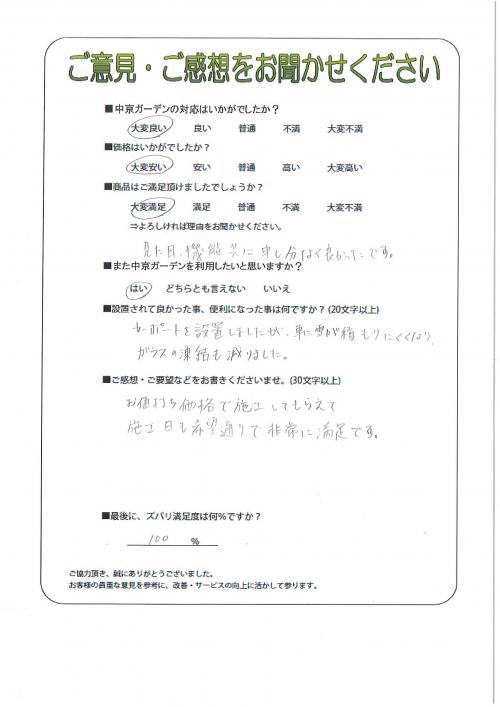 ご意見・ご感想をお聞かせください
■中京ガーデンの対応はいかがでしたか？
大変良い 良い 普通 不満 大変不満
■価格はいかがでしたか？
大変安い 安い 普通 高い 大変高い
■商品はご満足頂けましたでしょうか？
大変満足 満足 普通 不満 大変不満
⇒よろしければ理由をお聞かせください。
見た目、機能共に申し分なく良かったです。
■また中京ガーデンを利用したいと思いますか？
はい どちらとも言えない いいえ
■設置されて良かった事、便利になった事は何ですか？(20文字以上)
カーポートを設置しましたが、車に雪が積もりにくくなり、
ガラスの凍結も減りました。
■ご感想・ご要望などをお書きくださいませ。(30文字以上)
お値打ち価格で施工してもらえて
施工日も希望通りで非常に満足です。
■最後に、ズバリ満足度は何％ですか？
100 %
ご協力頂き、誠にありがとうございました。
お客様の貴重な意見を参考に、改善・サービスの向上に活かして参ります。